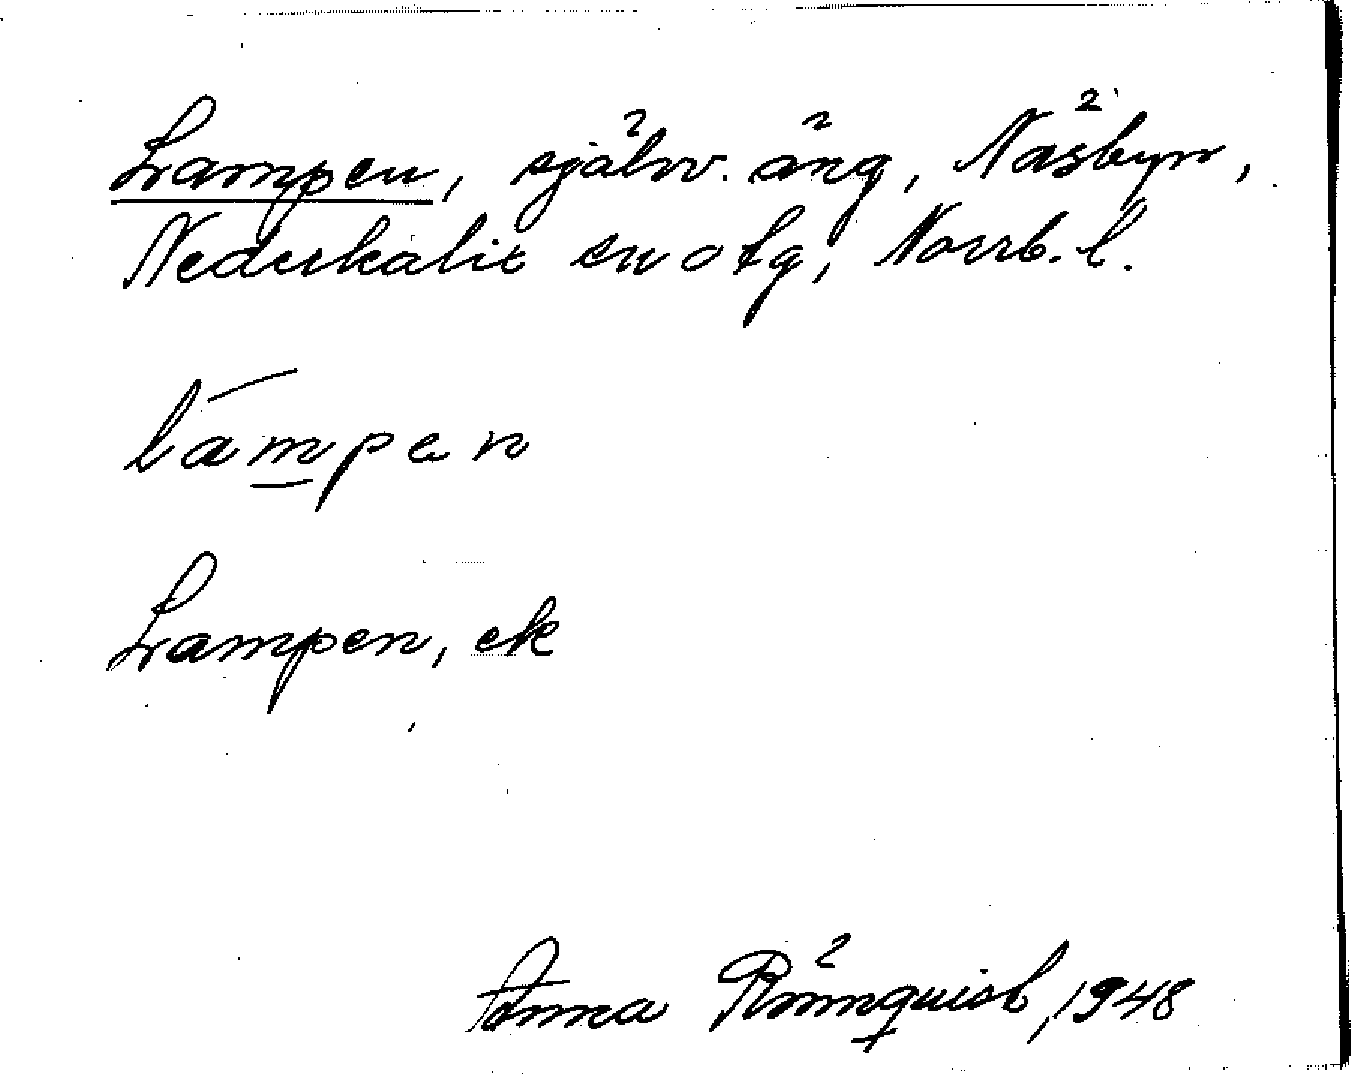 Lampen, själv. äng, Näsbyn,
Nederkalix sn o tg, Norrb. l.
lampen
Lampen, ek
Anna Rönnquist, 1948